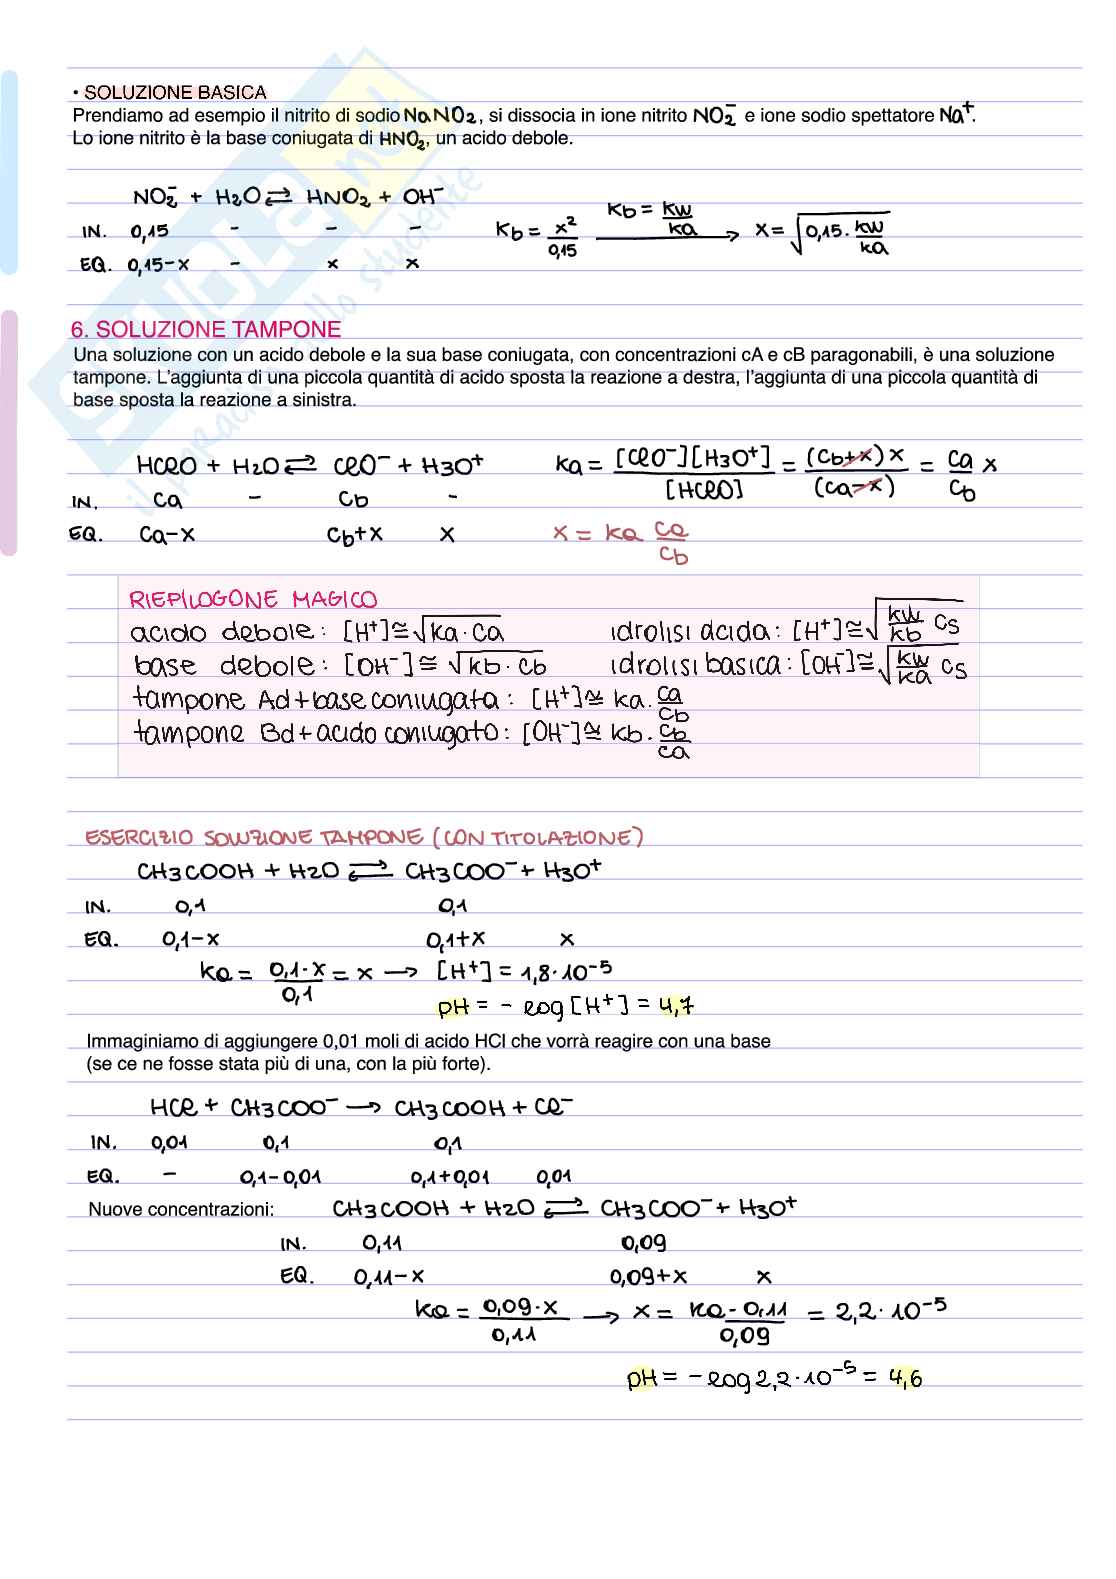 • SOLUZIONE BASICA
Prendiamo ad esempio il nitrito di sodio NaNO2, si dissocia in ione nitrito NO2⁻ e ione sodio spettatore Na⁺.
Lo ione nitrito è la base coniugata di HNO2, un acido debole.
NO2⁻ + H2O ⇌ HNO2 + OH⁻
IN. 0,15 - - -
EQ. 0,15-x - x x
Kb = x²/0,15 Kb = kw/ka → x = √(0,15 · kw/ka)
6. SOLUZIONE TAMPONE
Una soluzione con un acido debole e la sua base coniugata, con concentrazioni cA e cB paragonabili, è una soluzione
tampone. L'aggiunta di una piccola quantità di acido sposta la reazione a destra, l'aggiunta di una piccola quantità di
base sposta la reazione a sinistra.
HClO + H2O ⇌ ClO⁻ + H3O⁺
IN. Ca - Cb -
EQ. Ca-x Cb+x x
ka = [ClO⁻][H3O⁺]/[HClO] = (Cb+x)x/(Ca-x) = Ca/Cb x
x = ka Ca/Cb
RIEPILOGONE MAGICO
acido debole: [H⁺]≅√(ka · Ca) idrolisi acida: [H⁺]≅√(kw/kb Cs)
base debole: [OH⁻]≅√(kb · Cb) idrolisi basica: [OH⁻]≅√(kw/ka Cs)
tampone Ad+base coniugata: [H⁺]≅ ka · Ca/Cb
tampone Bd+acido coniugato: [OH⁻]≅ kb · Cb/Ca
ESERCIZIO SOLUZIONE TAMPONE (CON TITOLAZIONE)
CH3COOH + H2O ⇌ CH3COO⁻ + H3O⁺
IN. 0,1 0,1
EQ. 0,1-x 0,1+x x
Ka = 0,1·x/0,1 = x → [H⁺] = 1,8·10⁻⁵
pH = - log [H⁺] = 4,7
Immaginiamo di aggiungere 0,01 moli di acido HCl che vorrà reagire con una base
(se ce ne fosse stata più di una, con la più forte).
HCl + CH3COO⁻ → CH3COOH + Cl⁻
IN. 0,01 0,1 0,1
EQ. - 0,1-0,01 0,1+0,01 0,01
Nuove concentrazioni: CH3COOH + H2O ⇌ CH3COO⁻ + H3O⁺
IN. 0,11 0,09
EQ. 0,11-x 0,09+x x
Ka = 0,09·x/0,11 → x = Ka · 0,11/0,09 = 2,2·10⁻⁵
pH = -log 2,2·10⁻⁵ = 4,6